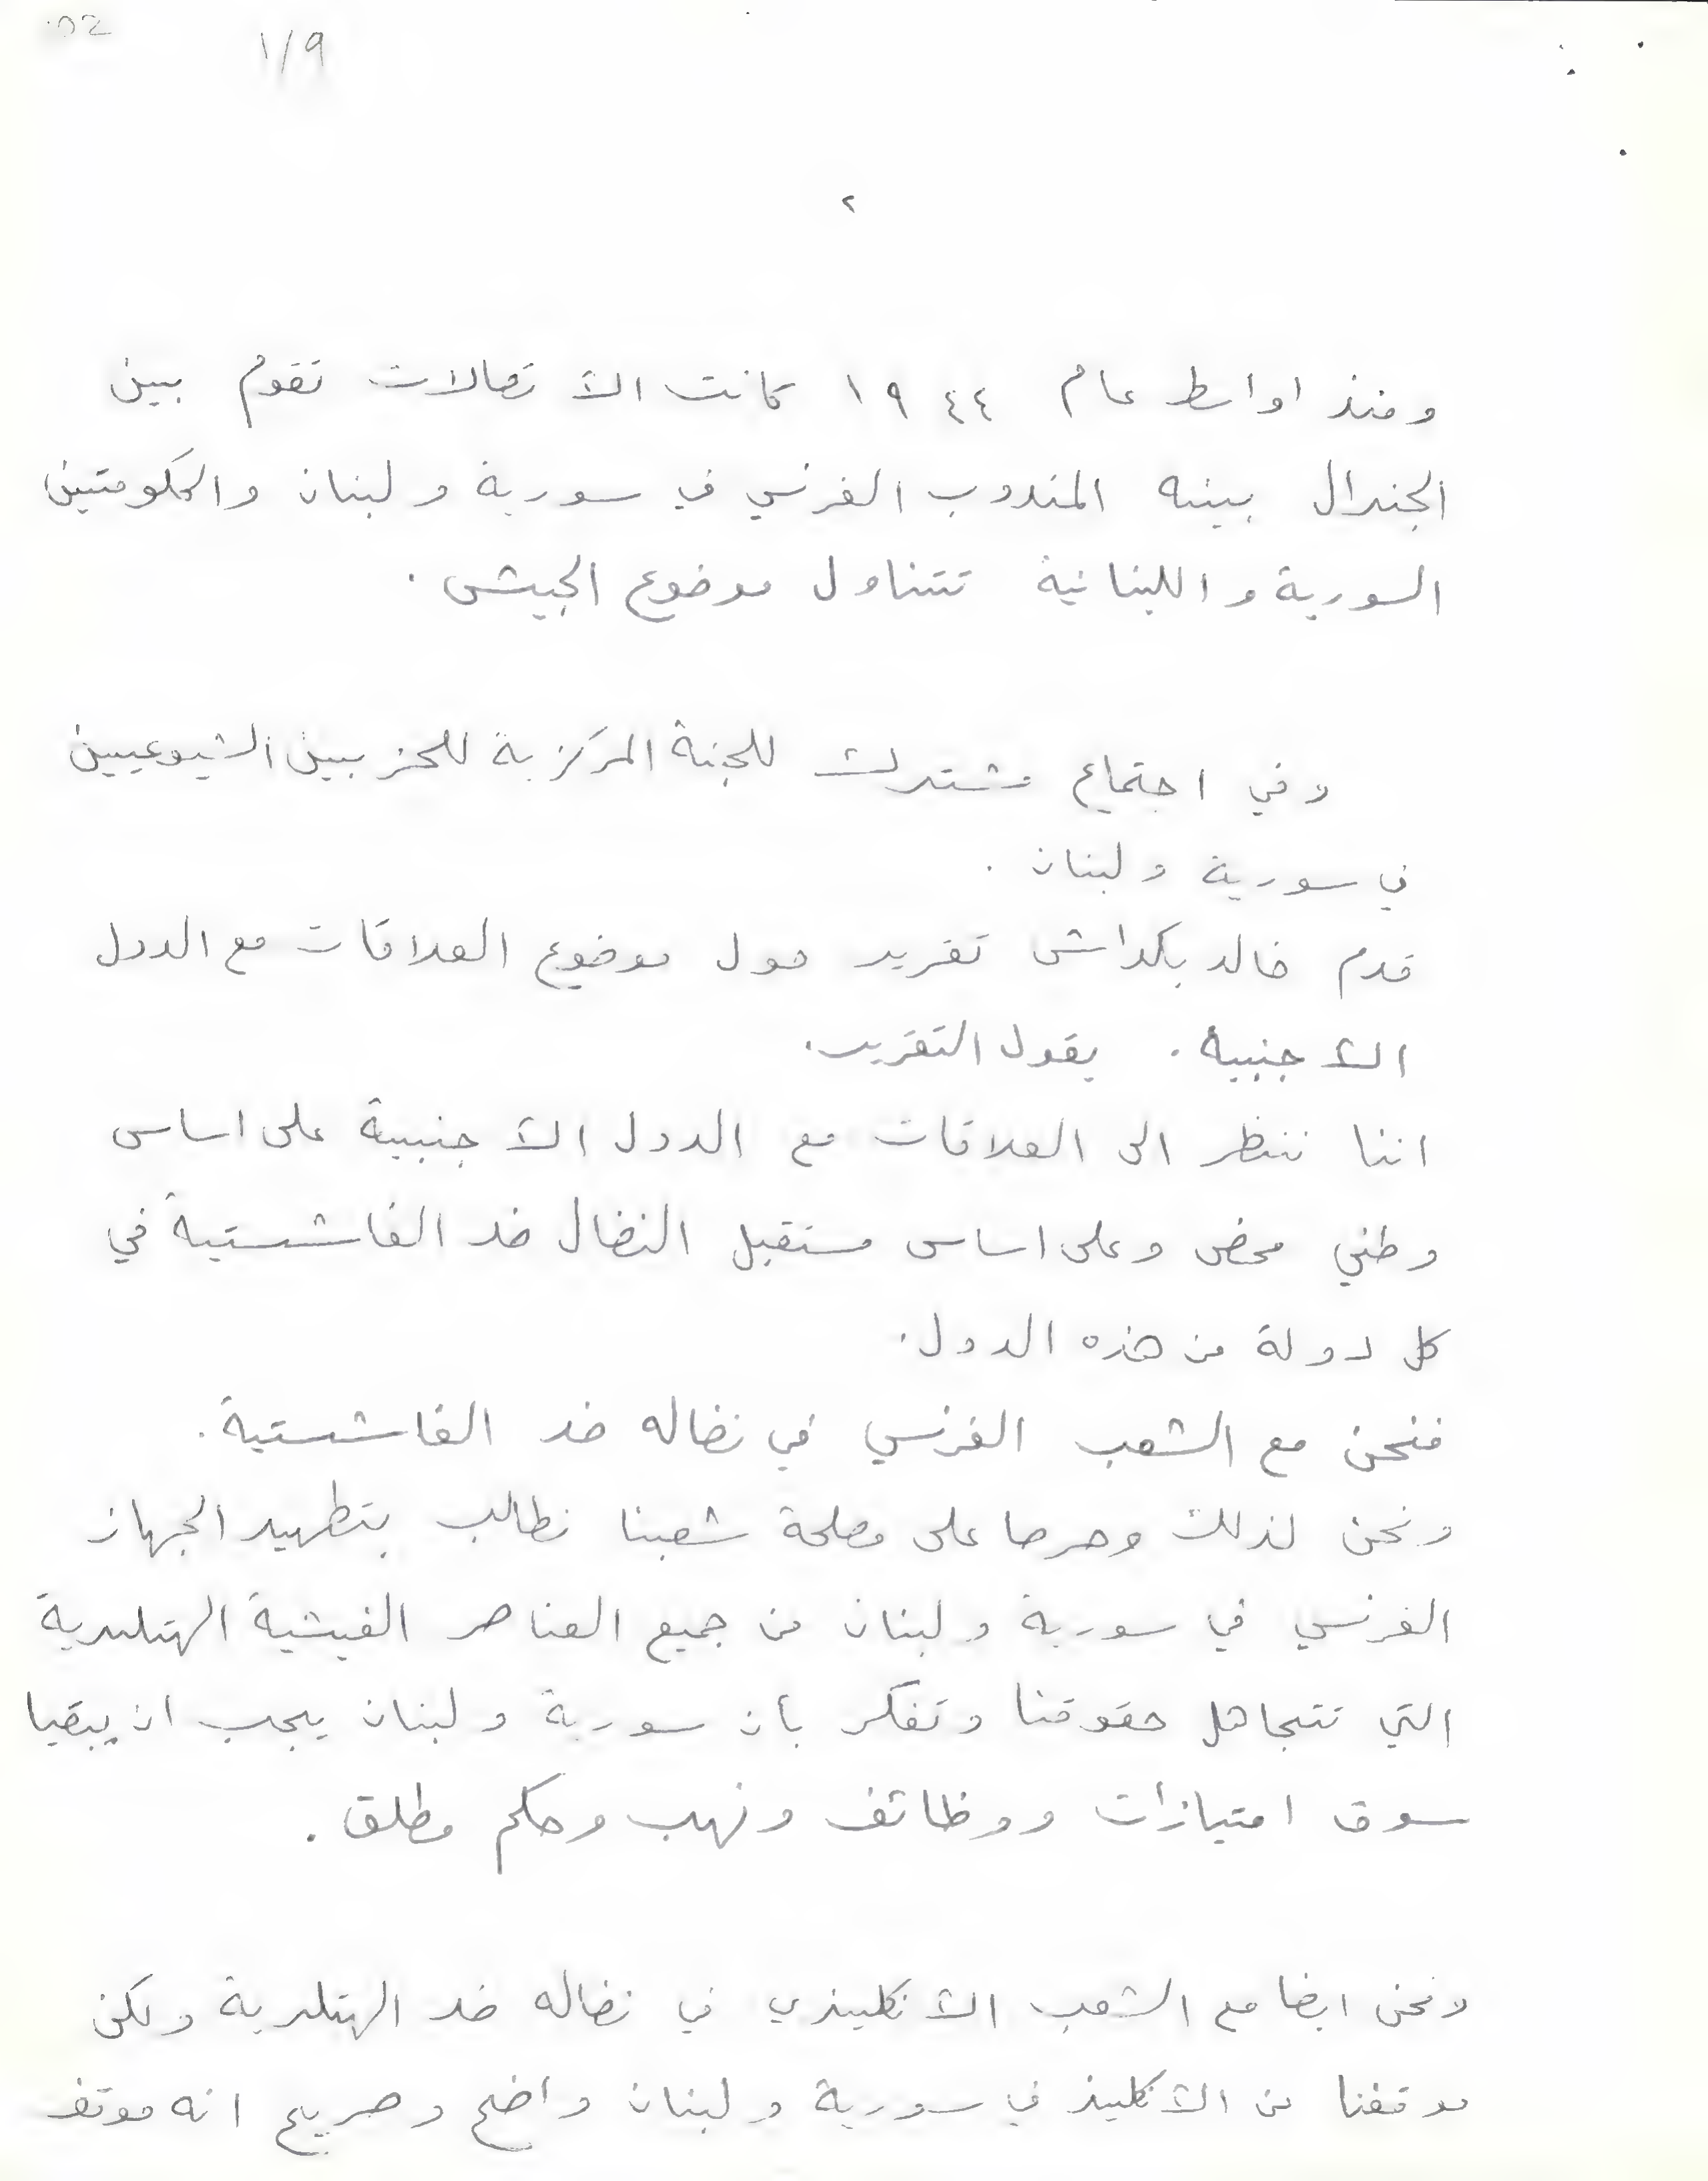 02
١/٩
٢
ومنذ اواسط عام ١٩٤٤ كانت الاتصالات تقوم بين
الجنرال بينه المندوب الفرنسي في سورية ولبنان والحكومتين
السورية واللبنانية تتناول موضوع الجيش .
وفي اجتماع مشترك للجنة المركزية للحزبيين الشيوعيين
في سورية ولبنان .
قدم خالد بكداش تقرير حول موضوع العلاقات مع الدول
الاجنبية . يقول التقرير .
اننا ننظر الى العلاقات مع الدول الاجنبية على اساس
وطني محض وعلى اساس مستقبل النضال ضد الفاشستية في
كل دولة من هذه الدول .
فنحن مع الشعب الفرنسي في نضاله ضد الفاشستية .
ونحن لذلك وحرصا على مصلحة شعبنا نطالب بتطهير الجهاز
الفرنسي في سورية ولبنان من جميع العناصر الفيشية الهتلرية
التي تتجاهل حقوقنا وتفكر بأن سورية ولبنان يجب ان يبقيا
سوق امتيازات ووظائف ونهب وحكم مطلق .
ونحن ايضا مع الشعب الانكليزي في نضاله ضد الهتلرية ولكن
موقفنا من الانكليز في سورية ولبنان واضح وصريح انه موقف